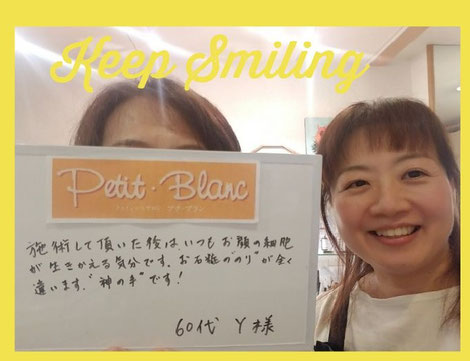 Keep Smiling
Petit・Blanc
プチ・ブラン
施術して頂いた後はいつもお顔の細胞
が生きかえる気分です。お化粧の"のり"が全く
違います。"神の手"です!
60代 Y様